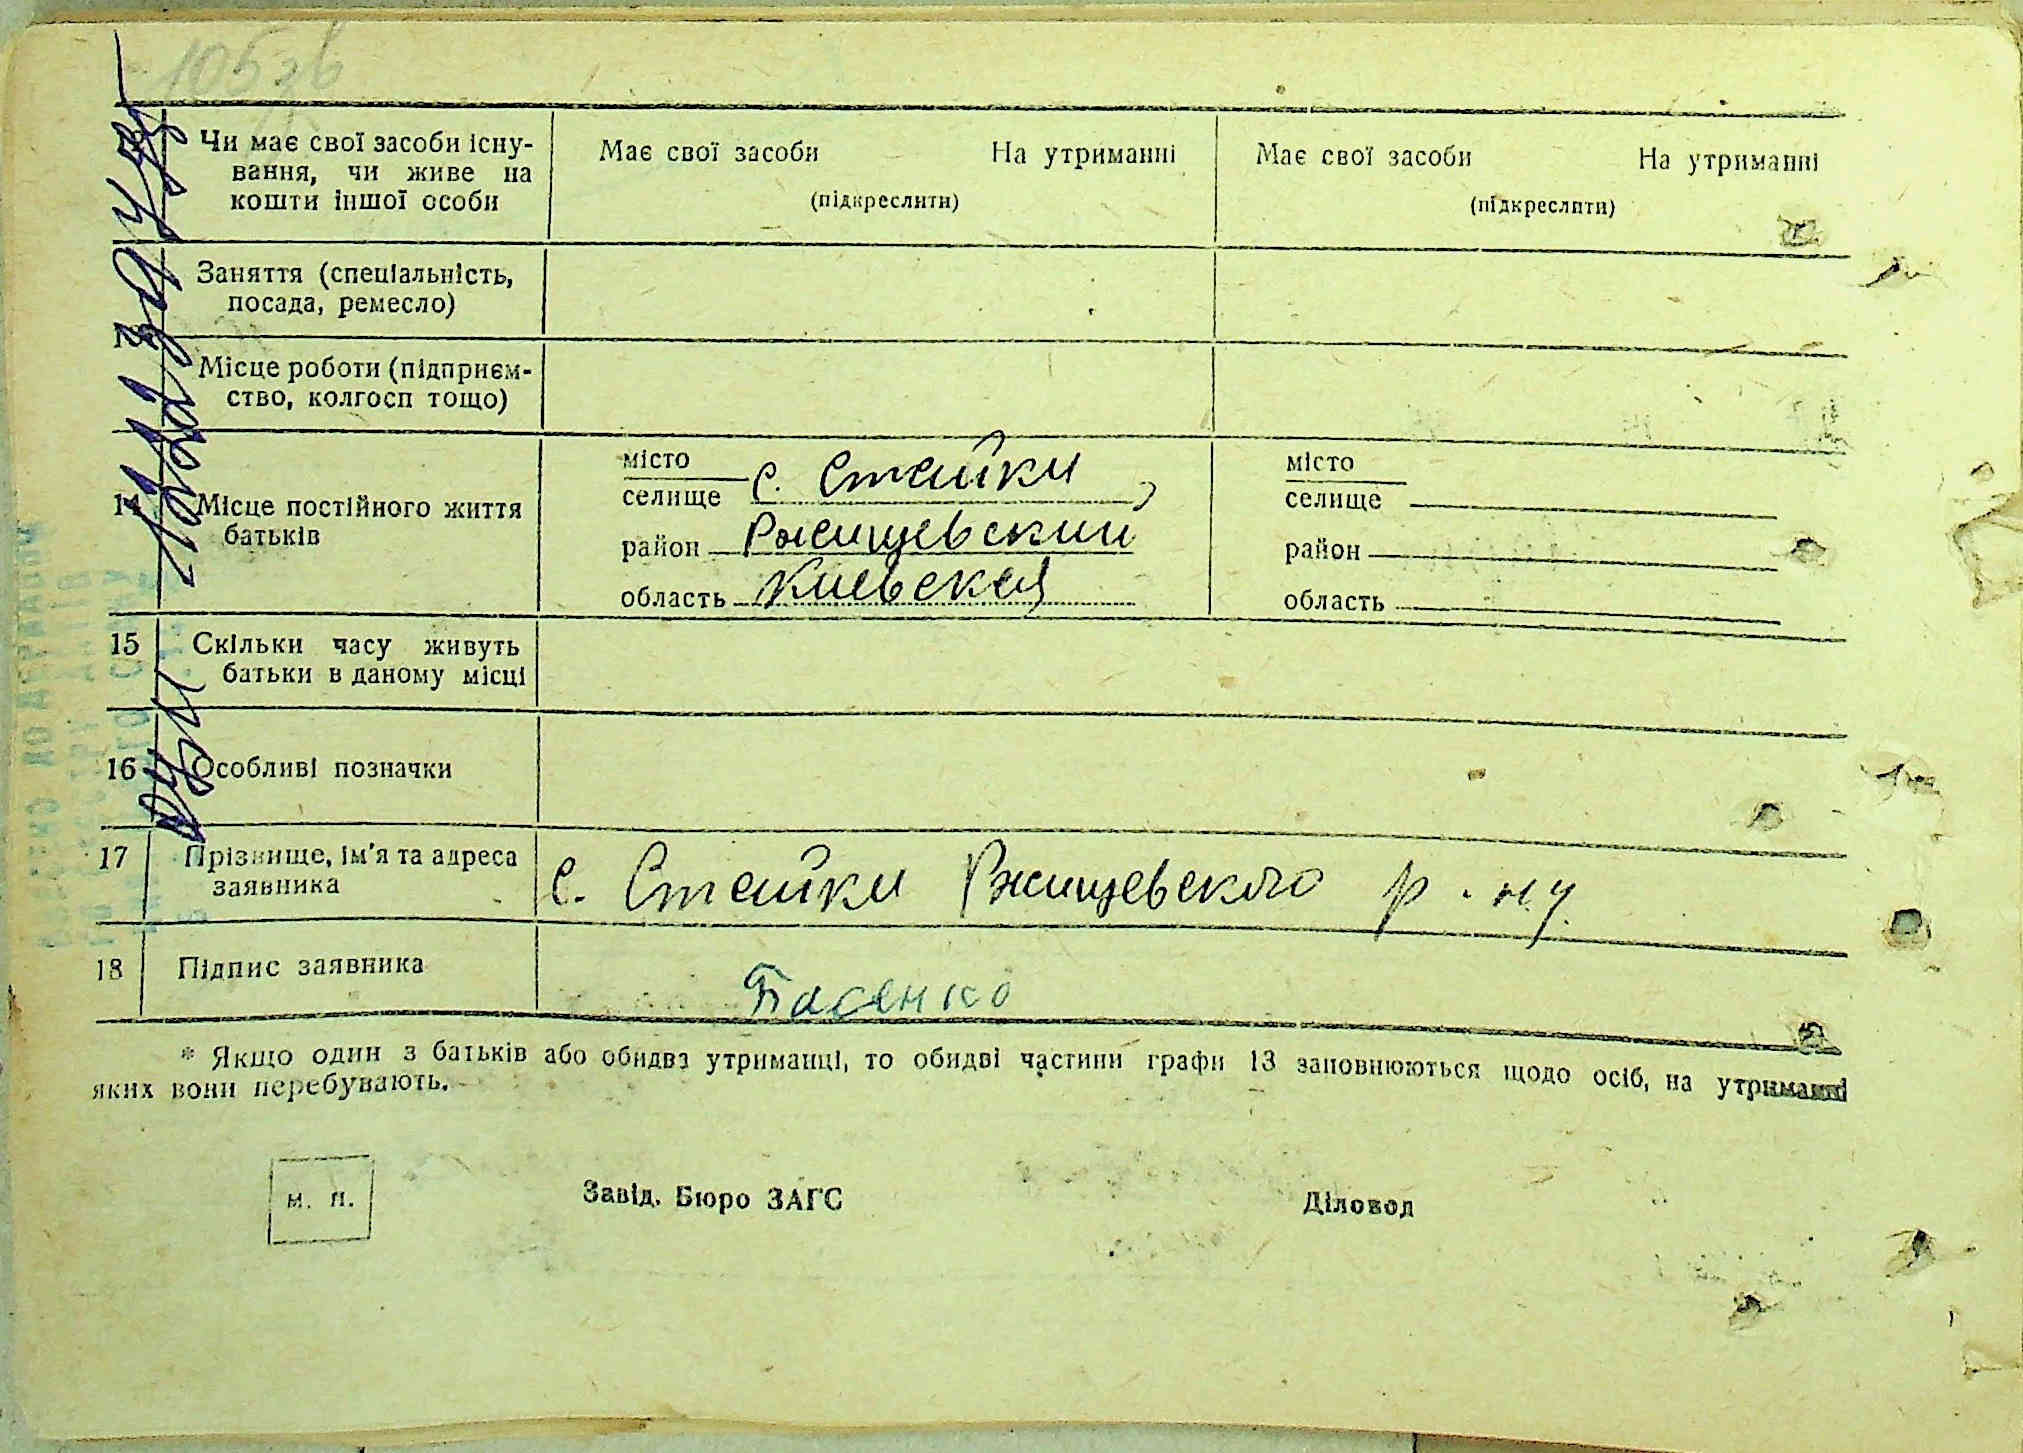 105зв
Чи має свої засоби існу-
вання, чи живе на
кошти іншої особи
Має свої засоби На утриманні
(підкреслити)
Має свої засоби На утриманні
(підкреслити)
Заняття (спеціальність,
посада, ремесло)
Місце роботи (підприєм-
ство, колгосп тощо)
14 Місце постійного життя
батьків
місто
селище с. Стайки,
район Ржищевский
область Киевская
місто
селище
район
область
15 Скільки часу живуть
батьки в даному місці
16 Особливі позначки
17 Прізвище, ім'я та адреса
заявника
с. Стайки Ржищевского р-ну.
18 Підпис заявника
Пасенко
* Якщо один з батьків або обидва утриманці, то обидві частини графи 13 заповнюються щодо осіб, на утриманні
яких вони перебувають.
м. п. Завід. Бюро ЗАГС Діловод